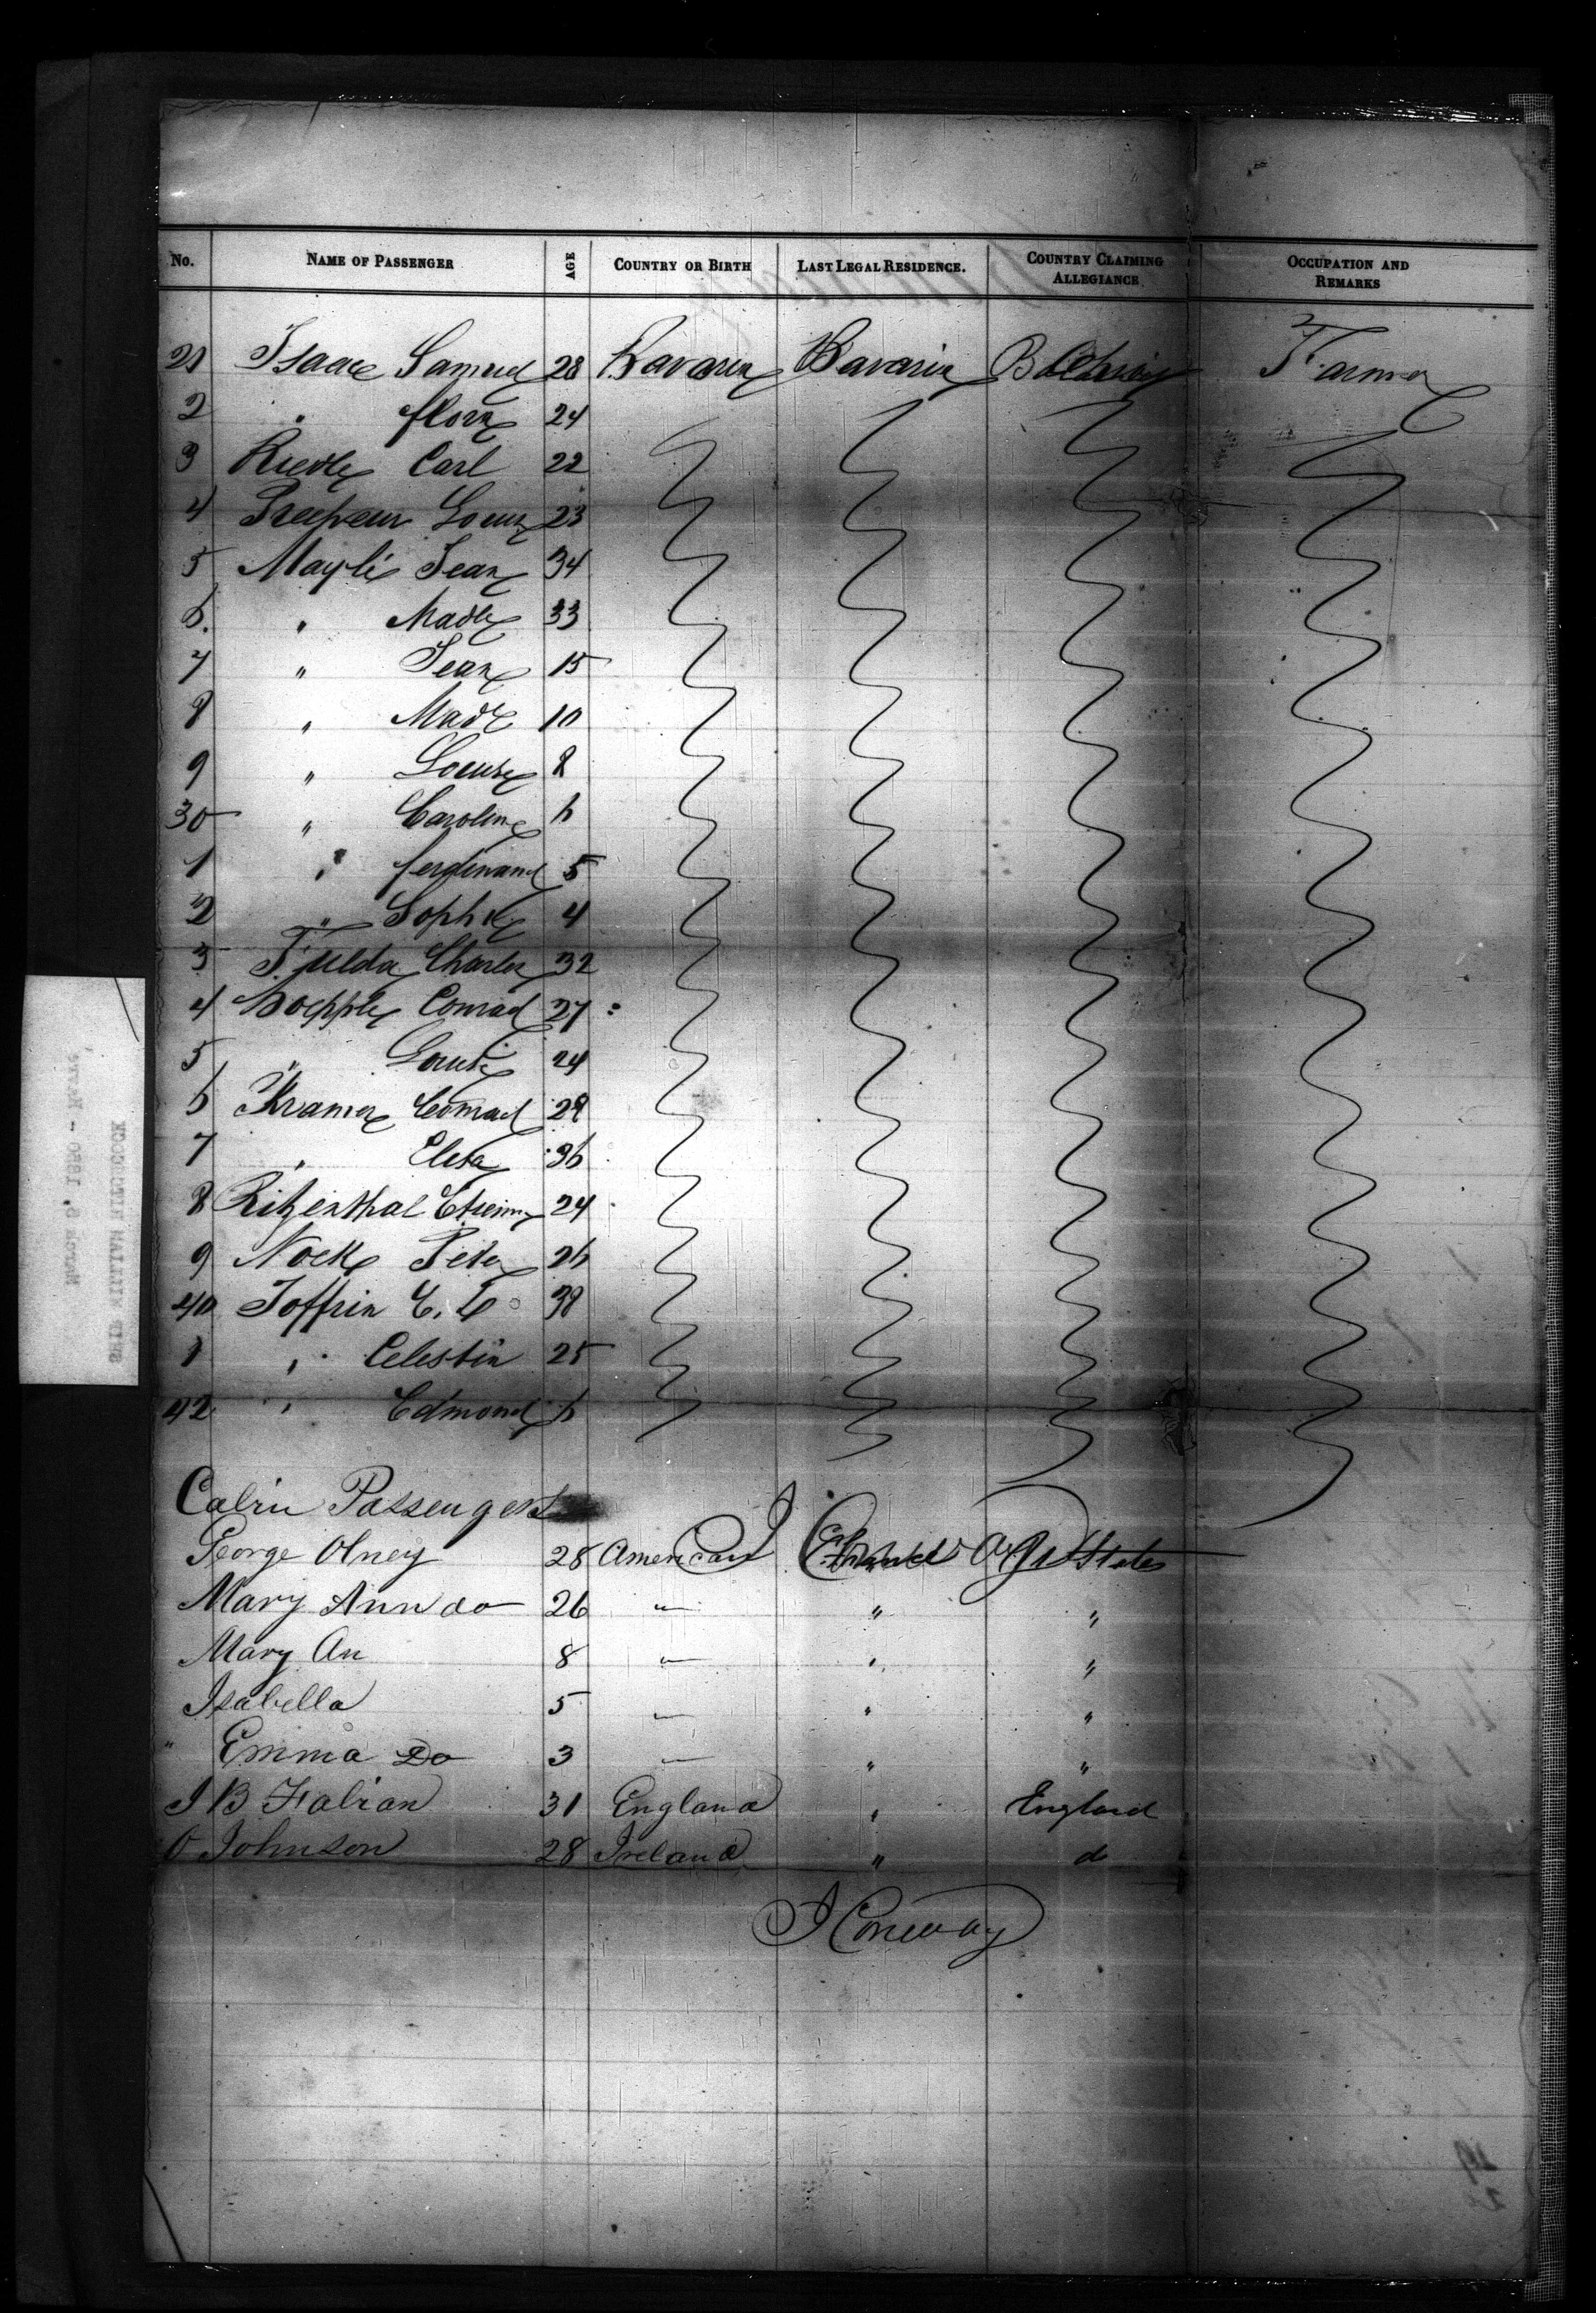 No. NAME OF PASSENGER AGE COUNTRY OR BIRTH LAST LEGAL RESIDENCE. COUNTRY CLAIMING ALLEGIANCE OCCUPATION AND REMARKS
21 Isaac Samuel 28 Bavaria Bavaria Farmer
2 " flora 24
3 Riedle Carl 22
4 23
5 Maylié Jean 34
6. " Madle 33
7 " Jean 15
8 " Made 10
9 " Louise 8
30 " Caroline 6
1 " ferdinand 5
2 " Sophie 4
3 Fulda Charles 32
4 Hoepple Conrad 27
5 " Louise 24
6 Kramer Conrad 28
7 " Elisa 36
8 Ritzenthal Etienne 24
9 Nock Peter 26
40 Joffrin C. 38
1 " Celestin 25
42 " Edmond 6
Cabin Passengers
George Olney 28 American States
Mary Ann do 26 " " "
Mary An 8 " " "
Isabella 5 " " "
" Emma Do 3 " " "
J B Fabian 31 England " England
O Johnson 28 Ireland " d
J Conway
SHIP WILLIAM HITCHCOCK
March 5, 1850 - Havre